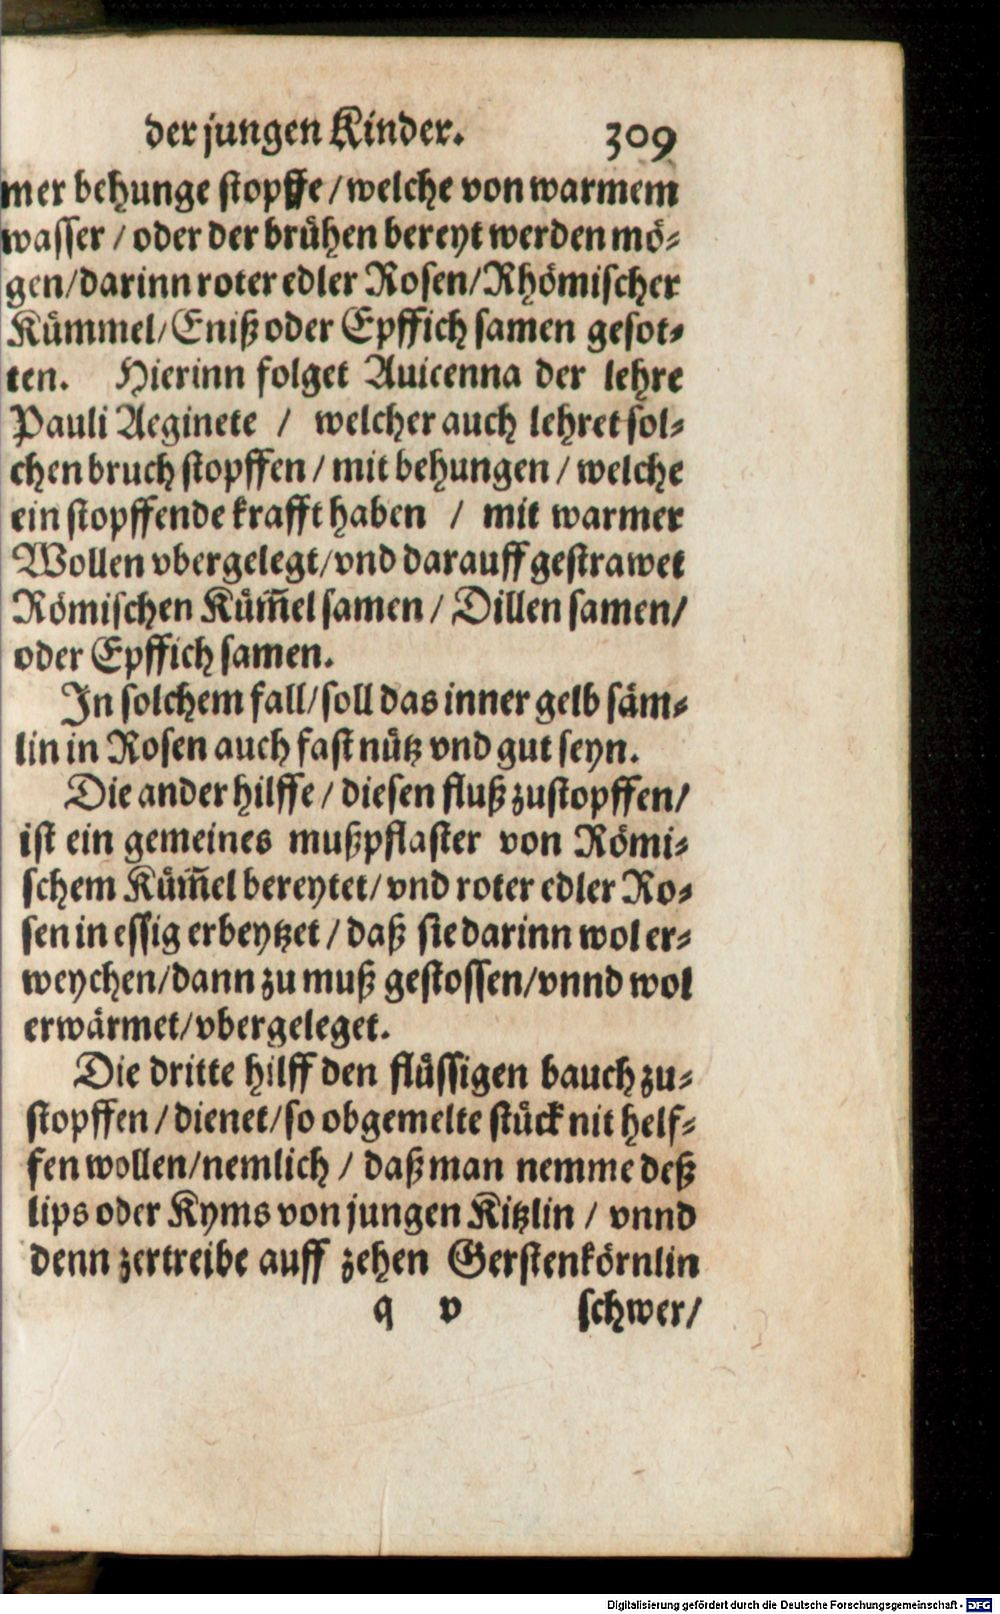 der jungen Kinder. 309
mer behunge stopffe / welche von warmem
wasser / oder der brühen bereyt werden mö⸗
gen / darinn roter edler Rosen / Rhömischer
Kümmel / Eniß oder Epffich samen gesot⸗
ten. Hierinn folget Auicenna der lehre
Pauli Aeginete / welcher auch lehret sol⸗
chen bruch stopffen / mit behungen / welche
ein stopffende krafft haben / mit warmer
Wollen vbergelegt / vnd darauff gestrawet
Römischen Küm̃el samen / Dillen samen /
oder Epffich samen.
In solchem fall / soll das inner gelb säm⸗
lin in Rosen auch fast nütz vnd gut seyn.
Die ander hilffe / diesen fluß zustopffen /
ist ein gemeines mußpflaster von Römi⸗
schem Küm̃el bereytet / vnd roter edler Ro⸗
sen in essig erbeytzet / daß sie darinn wol er⸗
weychen / dann zu muß gestossen / vnnd wol
erwärmet / vbergeleget.
Die dritte hilff den flüssigen bauch zu⸗
stopffen / dienet / so obgemelte stück nit helf⸗
fen wollen / nemlich / daß man nemme deß
lips oder Kyms von jungen Kitzlin / vnnd
denn zertreibe auff zehen Gerstenkörnlin
q v schwer /
Digitalisierung gefördert durch die Deutsche Forschungsgemeinschaft - DFG